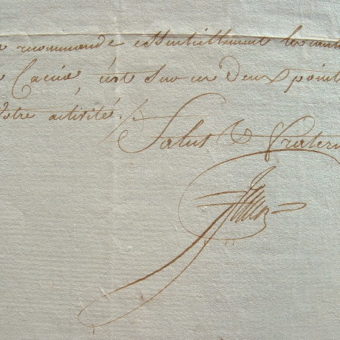 recommande essentiellement la
c'est sur ces deux point
votre activité.
Salut & fratern